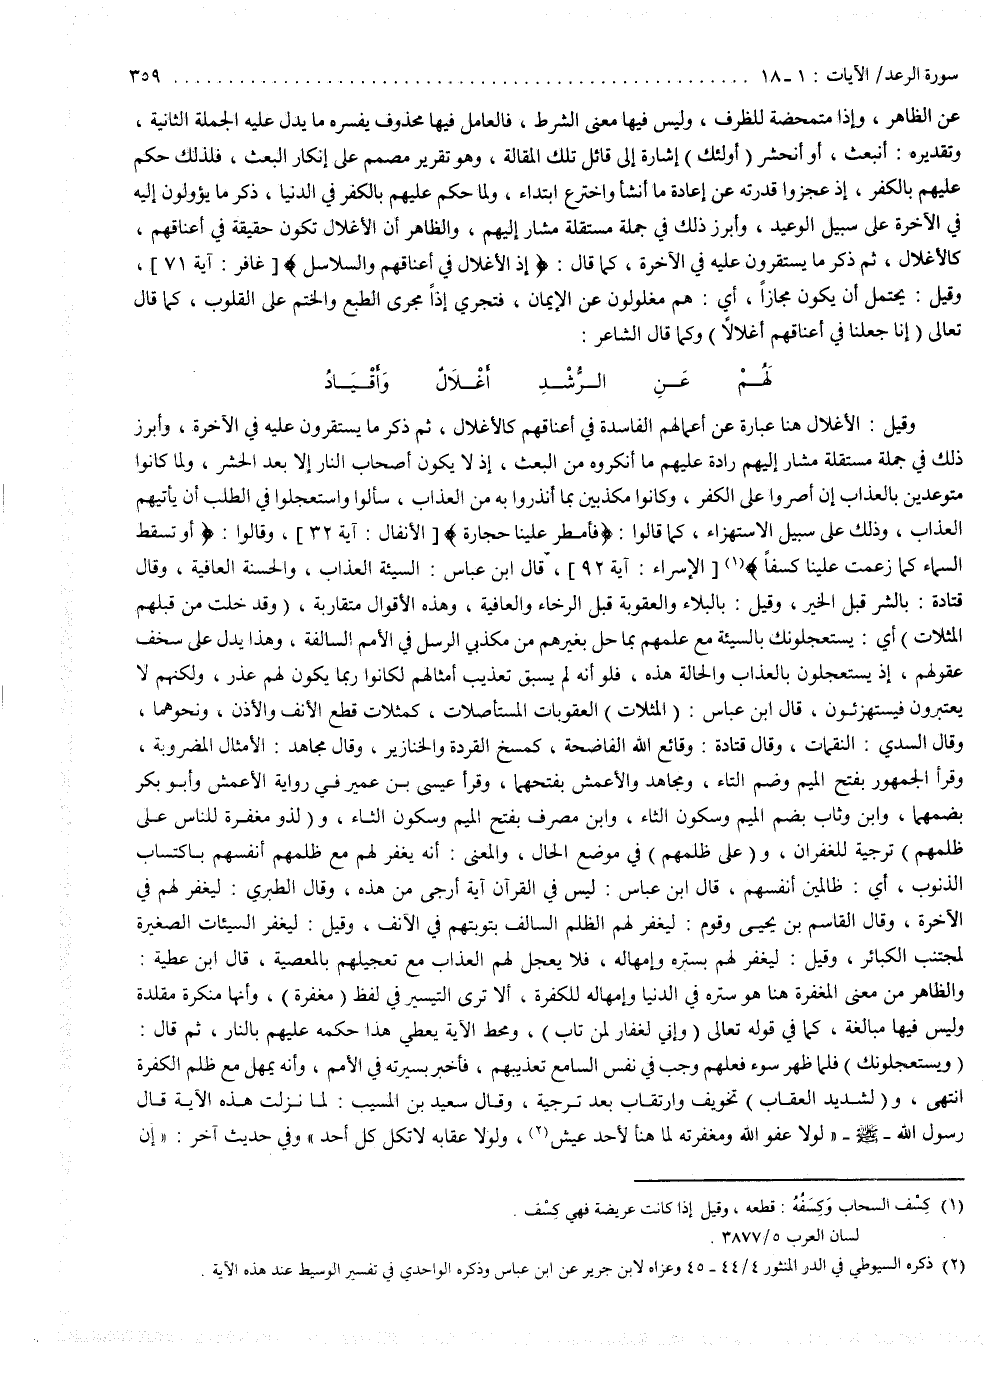 سورة الرعد/ الآيات : ١ ـ ١٨ ........................................................ ٣٥٩
عن الظاهر ، وإذا متمحضة للظرف ، وليس فيها معنى الشرط ، فالعامل فيها محذوف يفسره ما يدل عليه الجملة الثانية ،
وتقديره : أنبعث ، أو أنحشر ( أولئك ) إشارة إلى قائل تلك المقالة ، وهو تقرير مصمم على إنكار البعث ، فلذلك حكم
عليهم بالكفر ، إذ عجزوا قدرته عن إعادة ما أنشأ واخترع ابتداء ، ولما حكم عليهم بالكفر في الدنيا ، ذكر ما يؤولون إليه
في الآخرة على سبيل الوعيد ، وأبرز ذلك في جملة مستقلة مشار إليهم ، والظاهر أن الأغلال تكون حقيقة في أعناقهم ،
كالأغلال ، ثم ذكر ما يستقرون عليه في الآخرة ، كما قال : ﴿ إذ الأغلال في أعناقهم والسلاسل ﴾ [ غافر : آية ٧١ ] ،
وقيل : يحتمل أن يكون مجازاً ، أي : هم مغلولون عن الإيمان ، فتجري إذاً مجرى الطبع والختم على القلوب ، كما قال
تعالى ( إنا جعلنا في أعناقهم أغلالاً ) وكما قال الشاعر :
لَهُمْ عَنِ الرُّشْدِ أَغْلَالٌ وَأَقْيَادُ
وقيل : الأغلال هنا عبارة عن أعمالهم الفاسدة في أعناقهم كالأغلال ، ثم ذكر ما يستقرون عليه في الآخرة ، وأبرز
ذلك في جملة مستقلة مشار إليهم رادة عليهم ما أنكروه من البعث ، إذ لا يكون أصحاب النار إلا بعد الحشر ، ولما كانوا
متوعدين بالعذاب إن أصروا على الكفر ، وكانوا مكذبين بما أنذروا به من العذاب ، سألوا واستعجلوا في الطلب أن يأتيهم
العذاب ، وذلك على سبيل الاستهزاء ، كما قالوا : ﴿فأمطر علينا حجارة ﴾ [ الأنفال : آية ٣٢ ] ، وقالوا : ﴿ أو تسقط
السماء كما زعمت علينا كسفاً ﴾(١) [ الإسراء : آية ٩٢ ] ، قال ابن عباس : السيئة العذاب ، والحسنة العافية ، وقال
قتادة : بالشر قبل الخير ، وقيل : بالبلاء والعقوبة قبل الرخاء والعافية ، وهذه الأقوال متقاربة ، ( وقد خلت من قبلهم
المثلات ) أي : يستعجلونك بالسيئة مع علمهم بما حل بغيرهم من مكذبي الرسل في الأمم السالفة ، وهذا يدل على سخف
عقولهم ، إذ يستعجلون بالعذاب والحالة هذه ، فلو أنه لم يسبق تعذيب أمثالهم لكانوا ربما يكون لهم عذر ، ولكنهم لا
يعتبرون فيستهزئون ، قال ابن عباس : ( المثلات ) العقوبات المستأصلات ، كمثلات قطع الأنف والأذن ، ونحوهما ،
وقال السدي : النقمات ، وقال قتادة : وقائع الله الفاضحة ، كمسخ القردة والخنازير ، وقال مجاهد : الأمثال المضروبة ،
وقرأ الجمهور بفتح الميم وضم الثاء ، ومجاهد والأعمش بفتحهما ، وقرأ عيسى بن عمير في رواية الأعمش وأبو بكر
بضمهما ، وابن وثاب بضم الميم وسكون الثاء ، وابن مصرف بفتح الميم وسكون الثاء ، و( لذو مغفرة للناس على
ظلمهم ) ترجية للغفران ، و( على ظلمهم ) في موضع الحال ، والمعنى : أنه يغفر لهم مع ظلمهم أنفسهم باكتساب
الذنوب ، أي : ظالمين أنفسهم ، قال ابن عباس : ليس في القرآن آية أرجى من هذه ، وقال الطبري : ليغفر لهم في
الآخرة ، وقال القاسم بن يحيى وقوم : ليغفر لهم الظلم السالف بتوبتهم في الآنف ، وقيل : ليغفر السيئات الصغيرة
لمجتنب الكبائر ، وقيل : ليغفر لهم بستره وإمهاله ، فلا يعجل لهم العذاب مع تعجيلهم بالمعصية ، قال ابن عطية :
والظاهر من معنى المغفرة هنا هو ستره في الدنيا وإمهاله للكفرة ، ألا ترى التيسير في لفظ ( مغفرة ) ، وأنها منكرة مقلدة
وليس فيها مبالغة ، كما في قوله تعالى ( وإني لغفار لمن تاب ) ، ومحط الآية يعطي هذا حكمه عليهم بالنار ، ثم قال :
( ويستعجلونك ) فلما ظهر سوء فعلهم وجب في نفس السامع تعذيبهم ، فأخبر بسيرته في الأمم ، وأنه يمهل مع ظلم الكفرة
انتهى ، و( لشديد العقاب ) تخويف وارتقاب بعد ترجية ، وقال سعيد بن المسيب : لما نزلت هذه الآية قال
رسول الله ـ ﷺ ـ « لولا عفو الله ومغفرته لما هنأ لأحد عيش(٢) ، ولولا عقابه لاتكل كل أحد » وفي حديث آخر : « إن
(١) كِسْف السحاب وَكِسَفُهُ : قطعه ، وقيل إذا كانت عريضة فهي كِسْف .
لسان العرب ٣٨٧٧/٥ .
(٢) ذكره السيوطي في الدر المنثور ٤/ ٤٤ ـ ٤٥ وعزاه لابن جرير عن ابن عباس وذكره الواحدي في تفسير الوسيط عند هذه الآية .